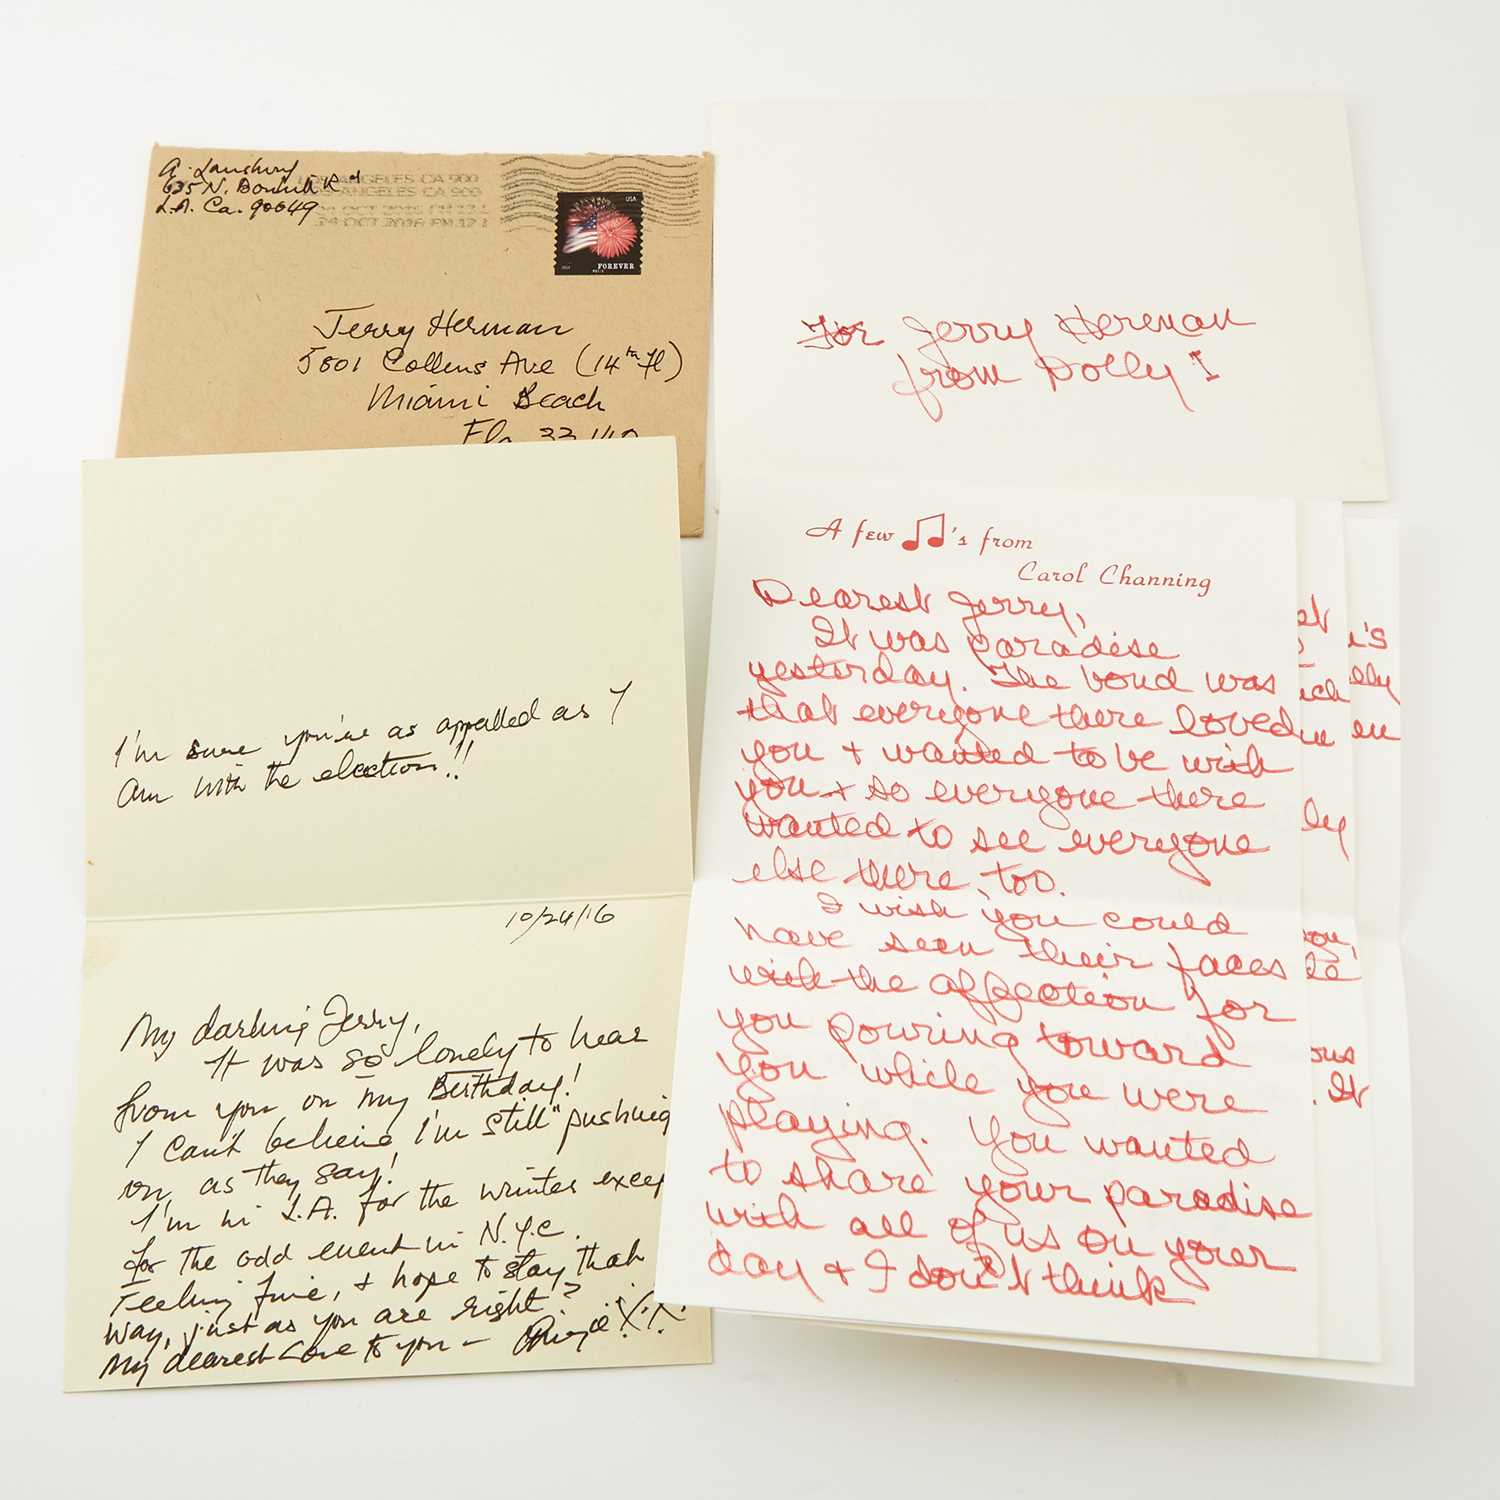 A. Lansbury
635 N. Bonhill Rd
L.A. Ca. 90049
LOS ANGELES CA 900
LOS ANGELES CA 900
24 OCT 2016 PM 12 L
24 OCT 2016 PM 12 L
USA
FOREVER
Jerry Herman
5801 Collins Ave (14th fl)
Miami Beach
Fla 33140
I'm sure you're as appalled as I
am with the election!!
10/24/16
My darling Jerry,
It was so lovely to hear
from you on my Birthday!
I can't believe I'm still "pushing
on, as they say!
I'm in L.A. for the winter excep
for the odd event in N.Y.C.
Feeling fine, & hope to stay that
way, just as you are right?
My dearest Love to you – Angie X.X.
For Jerry Herman
from Dolly I
A few ♫'s from
Carol Channing
Dearest Jerry,
It was paradise
yesterday. The bond was
that everyone there loved
you + wanted to be with
you + so everyone there
wanted to see everyone
else there, too.
I wish you could
have seen their faces
with the affection for
you pouring toward
you while you were
playing. You wanted
to share your paradise
with all of us on your
day & I don't think